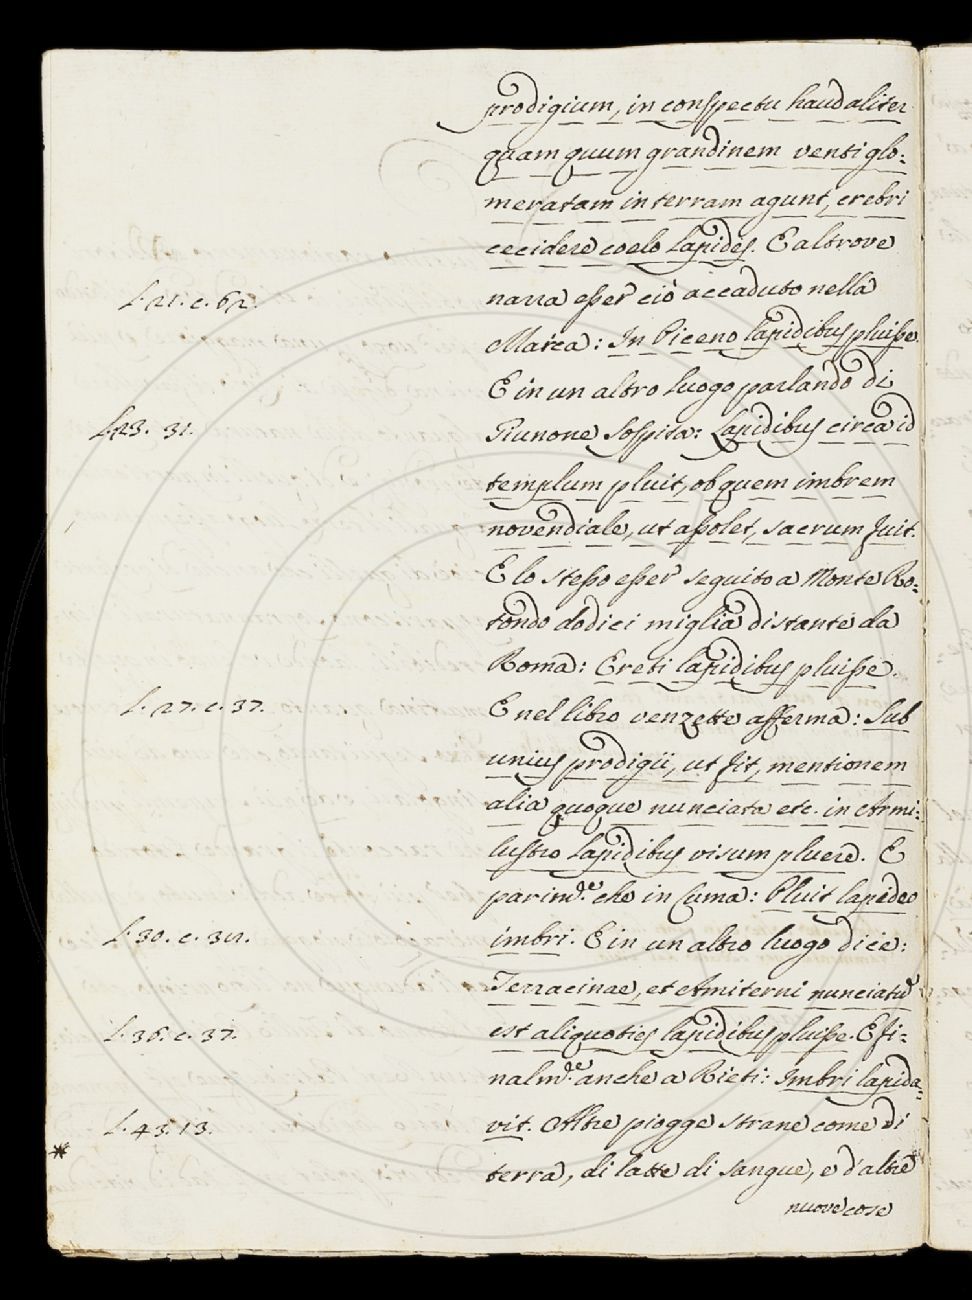 prodigium, in conspectu haud aliter
quam quum grandinem venti glo:
meratam in terram agunt, crebri
cecidere coelo Lapides. E altrove
L. 21. c. 62. narra esser ciò accaduto nella
Marca: In Piceno lapidibus pluisse
E in un altro luogo parlando di
L. 23. 31. Giunone Sospita: Lapidibus circa id
templum pluit, ob quem imbrem
novendiale, ut assolet, sacrum fuit.
E lo stesso esser seguito a Monte Ro:
tondo dodici miglia distante da
Roma: Ereti lapidibus pluisse.
L. 27. c. 37. E nel libro venzette afferma: Sub
unius prodigii, ut fit, mentionem
alia quoque nunciata etc. in Armi:
lustro Lapidibus visum pluere. E
parim.de che in Cuma: Pluit lapideo
L. 30. c. 38. imbri. E in un altro luogo dice:
Terracinae, et Amiterni nunciatu
L. 36. c. 37. est aliquoties lapidibus pluisse. E fi:
nalm.de anche a Rieti: Imbri lapida:
L. 43. 13. vit. Altre piogge strane come di
* terra, di latte di sangue, e d'altre
nuove cose